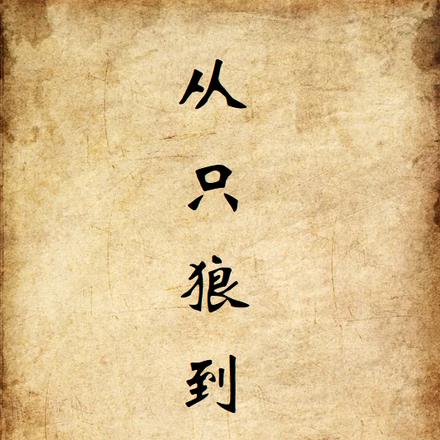 从只狼到